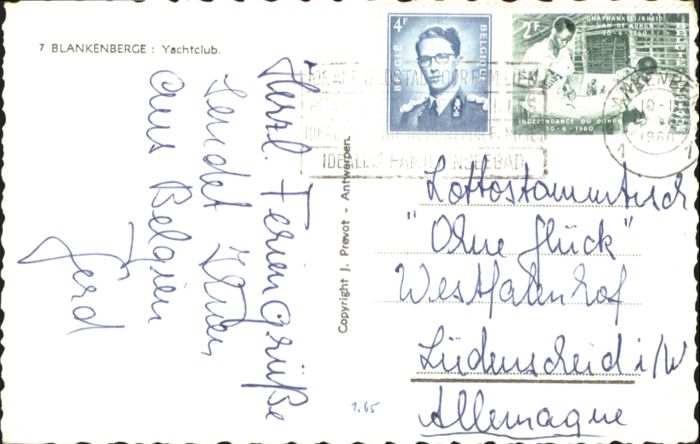 7 BLANKENBERGE : Yachtclub.
Herzl. Feriengrüße
sendet Ihnen
aus Belgien
Gerd
Copyright J. Prevot - Antwerpen.
4F
BELGIË
BELGIQUE
2F
ONAFHANKELIJKHEID
VAN DE KONGO
30-6-1960
INDEPENDANCE DU CONGO
30-6-1960
IDEALES FAMILIENSEEBAD
1960
Lottostammtisch
"Ohne Glück"
Westfalenhof
Lüdenscheid i/W
Allemagne
1,65